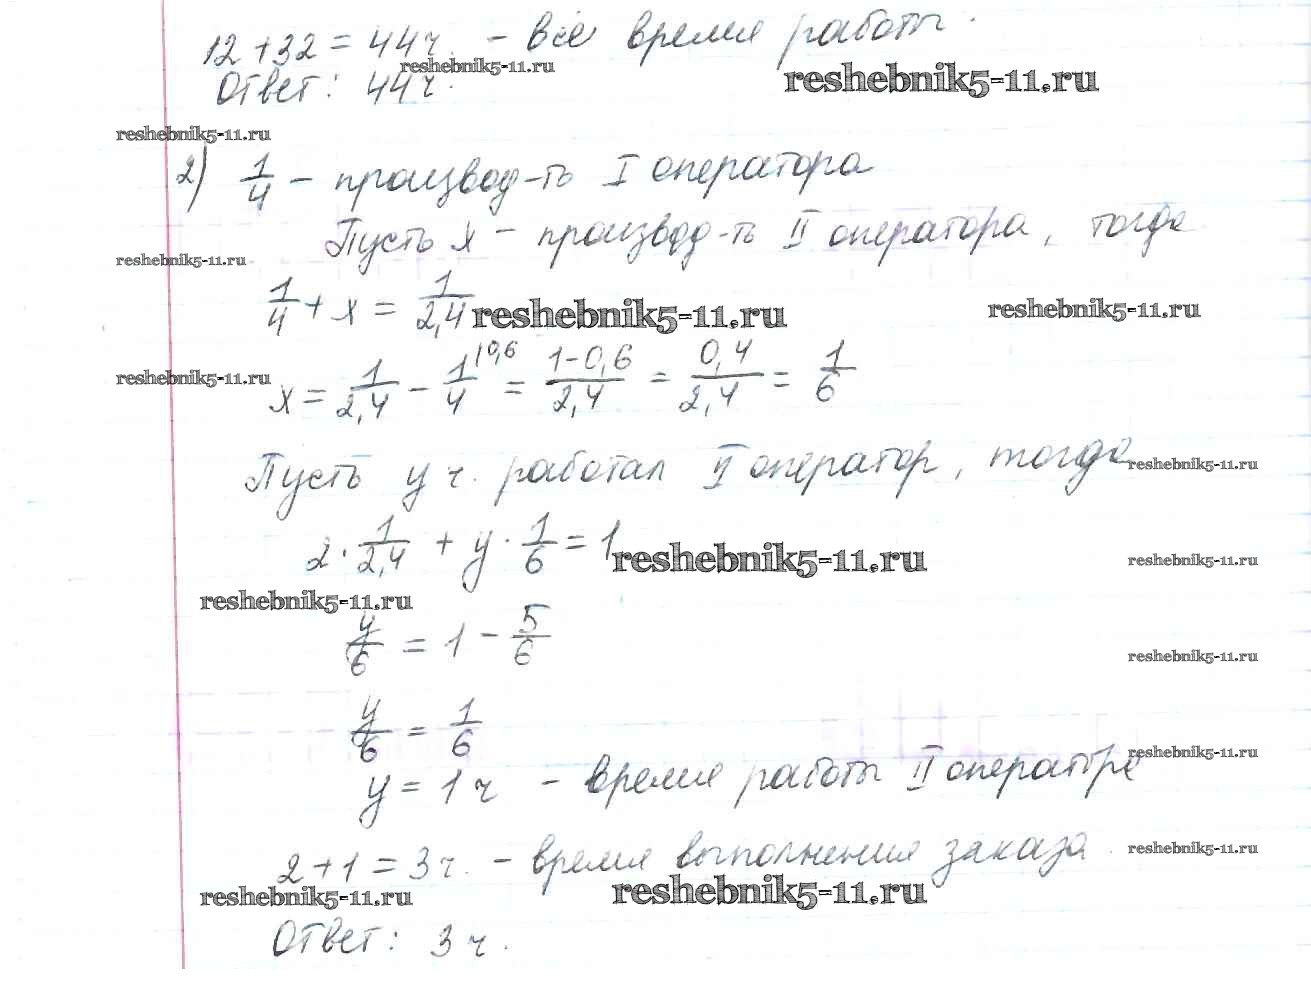 12 + 32 = 44 ч. - всё время работы.
reshebnik5-11.ru
reshebnik5-11.ru
Ответ: 44 ч.
reshebnik5-11.ru
2) 1/4 - производ-ть I оператора
Пусть x - производ-ть II оператора, тогда
reshebnik5-11.ru
1/4 + x = 1/2,4
reshebnik5-11.ru
reshebnik5-11.ru
reshebnik5-11.ru
x = 1/2,4 - 1/4 |0,6 = 1-0,6/2,4 = 0,4/2,4 = 1/6
Пусть y ч. работал II оператор, тогда
reshebnik5-11.ru
2 · 1/2,4 + y · 1/6 = 1
reshebnik5-11.ru
reshebnik5-11.ru
reshebnik5-11.ru
y/6 = 1 - 5/6
reshebnik5-11.ru
y/6 = 1/6
reshebnik5-11.ru
y = 1 ч - время работы II оператора
2 + 1 = 3 ч. - время выполнения заказа.
reshebnik5-11.ru
reshebnik5-11.ru
reshebnik5-11.ru
Ответ: 3 ч.